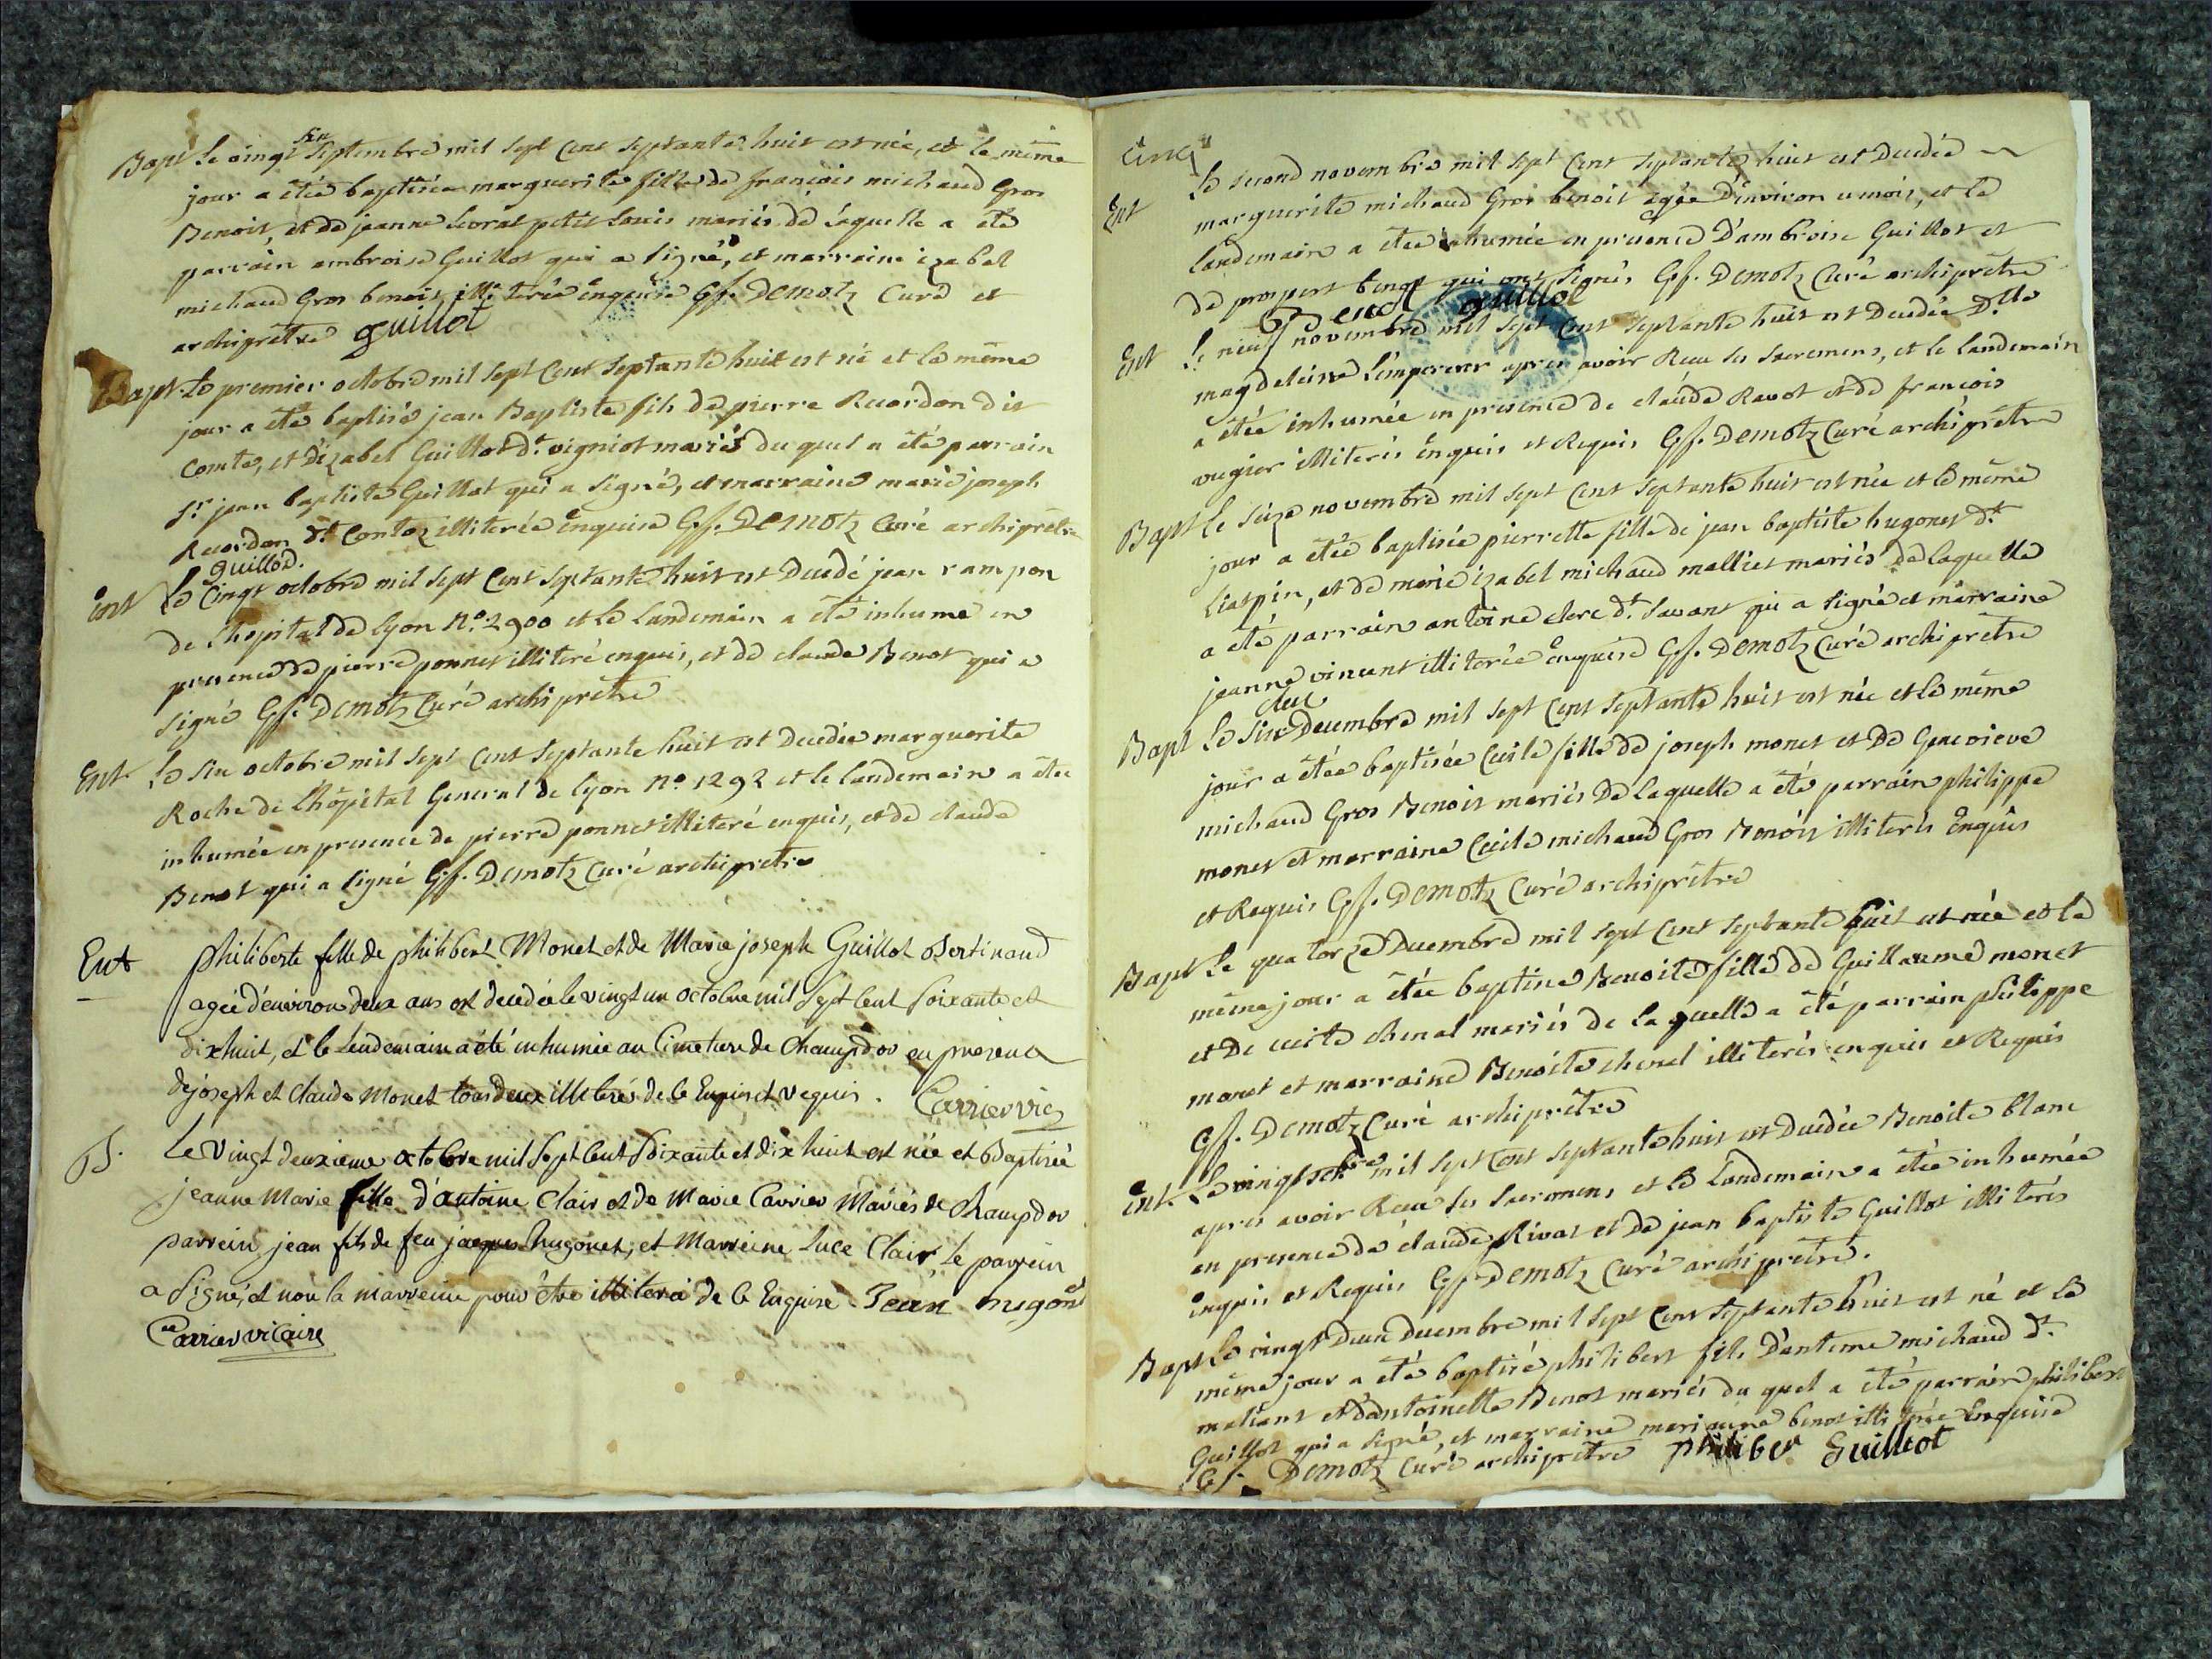 Bapt Le vingt six septembre mil sept cent septante huit est née, et le même
jour a étée baptisée marguerite fille de françois michaud Gros
Benoit, et de jeanne petit Louis mariés de laquelle a été
parrain ambroise Guillot qui a signé, et marraine izabel
michaud Gros benoit illiterée enquise Gf. Demotz Curé et
archiprêtre guillot
Bapt Le premier octobre mil sept cent septante huit est né et le même
jour a été baptisé jean Baptiste fils de pierre Reuordon dit
Comte, et d'izabel Guillot dt. vigniot mariés du quel a été parrain
Sr. jean baptiste Guillot qui a signé, et marraine marie joseph
Reuordon dt. Contoz illiterée enquise Gf. Demotz Curé archiprêtre
guillod.
ent Le cinqt octobre mil sept cent septante huit est decedé jean rampon
de l'hopital de lyon No. 2900 et le landemain a été inhume en
presence de pierre ponnet illiteré enquis, et de claude Benot qui a
signé Gf. Demotz Curé archiprêtre
Ent. Le six octobre mil sept cent septante huit est decedée marguerite
Roche de l'hôpital General de lyon No. 1292 et le landemain a étee
inhumée en presence de pierre ponnet illiteré enquis, et de claude
Benot qui a signé Gf. Demotz Curé archiprêtre
Ent philiberte fille de philibert Monet et de Marie joseph Guillot Bertinand
agée d'environ deux ans est decedée le vingt un octobre mil sept cent soixante et
dix huit, et le lendemain a été inhumée au Cimetiere de Champdor en presence
de joseph et Claude Monet tous deux illiterés de ce Enquis et requis. Carrier vic
B. Le vingt deuxieme octobre mil sept cent soixante et dix huit est née et Baptisée
jeanne Marie fille d'antoine Clair et de Marie Carrier Mariés de Champdor
parrein jean fils de feu jacques hugonet, et Marreine Luce Clair, le parrein
a signé, et non la marreine pour être illiteré de ce Enquise Jean hugonet
Carrier vicaire
cinq
Ent Le second novembre mil sept cent septante huit est decedée
marguerite michaud Gros benoit agée d'environ u mois, et le
landemain a étee inhumée en presence d'ambroise Guillot et
de prospert benot qui ont signés Gf. Demotz Curé archiprêtre
guillot
Ent Le neuf novembre mil sept cent septante huit est decedée D.lle
magdeleine l'empereur apres avoir Reçu ses sacremens, et le landemain
a étée inhumée en presence de claude Ravot et de francois
vugier illiterés enquis et Requis Gf. Demotz Curé archiprêtre
Bapt Le seize novembre mil sept cent septante huit est née et le même
jour a étée baptisée pierrette fille de jean baptiste hugonet dt.
Liatpin, et de marie izabel michaud malliet mariés de laquelle
a été parrain antoine clerc dt. Savant qui a signé et marraine
jeanne vincent illiterée enquise Gf. Demotz Curé archiprêtre
clerc
Bapt Le six Decembre mil sept cent septante huit est née et le même
jour a étée baptisée Cecile fille de joseph monet et de Genevieve
michaud Gros Benoit mariés de laquelle a été parrain philippe
monet et marraine Cecile michaud Gros Benoit illiterés Enquis
et Requis Gf. Demotz Curé archiprêtre
Bapt Le quatorze Decembre mil sept cent septante huit est née et le
même jour a étée baptisée Benoite fille de Guillaume monet
et de cecile chenal mariés de laquelle a été parrain philippe
monet et marraine Benoite chenal illiterés enquis et Requis
Gf. Demotz Curé archiprêtre
ent. Le vingt Xbre mil sept cent septante huit est decedée Benoite blanc
apres avoir Reçu ses sacremens et le landemain a étée inhumée
en presence de claude Rivat et de jean baptiste Guillot illiterés
enquis et Requis Gf. Demotz Curé archiprêtre.
Bapt Le vingt Deux decembre mil sept cent septante huit est né et le
même jour a été baptisé philibert fils d'anteme michaud dt.
maliant et d'antoinette Benot mariés du quel a été parrain philibert
Guillot qui a signé, et marraine marianne benot illiterée Enquise
Gf. Demotz Curé archiprêtre philiber Guilliot